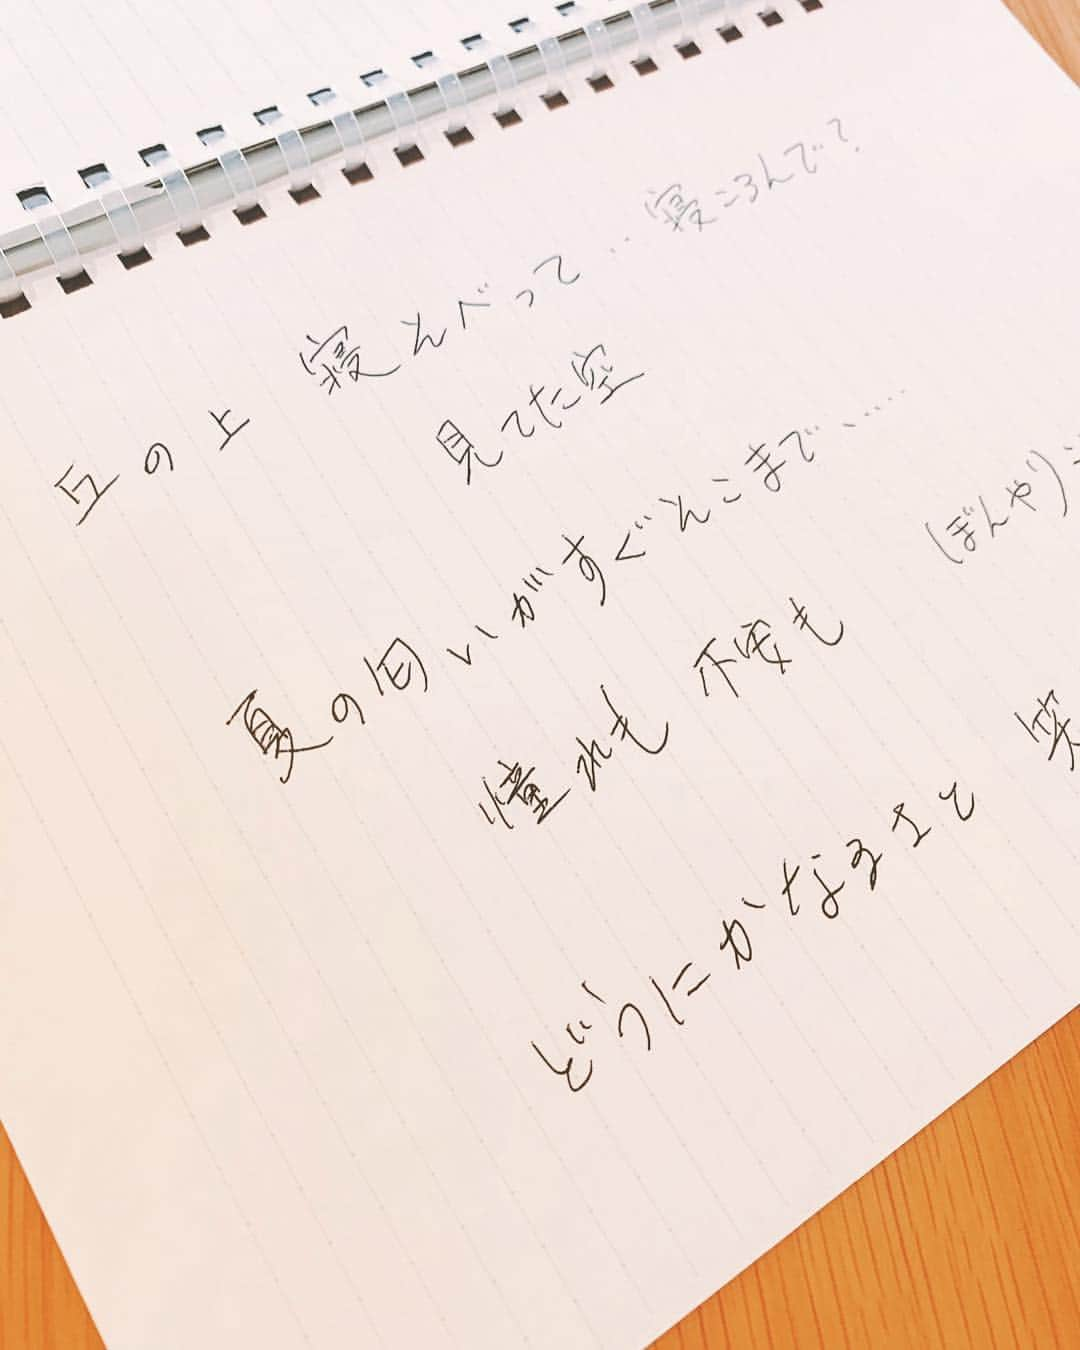 丘の上 寝そべって…寝ころんで?
見てた空
夏の匂いがすぐそこまで、……
ぼんやり
憧れも 不安も
どうにかなるさと 笑